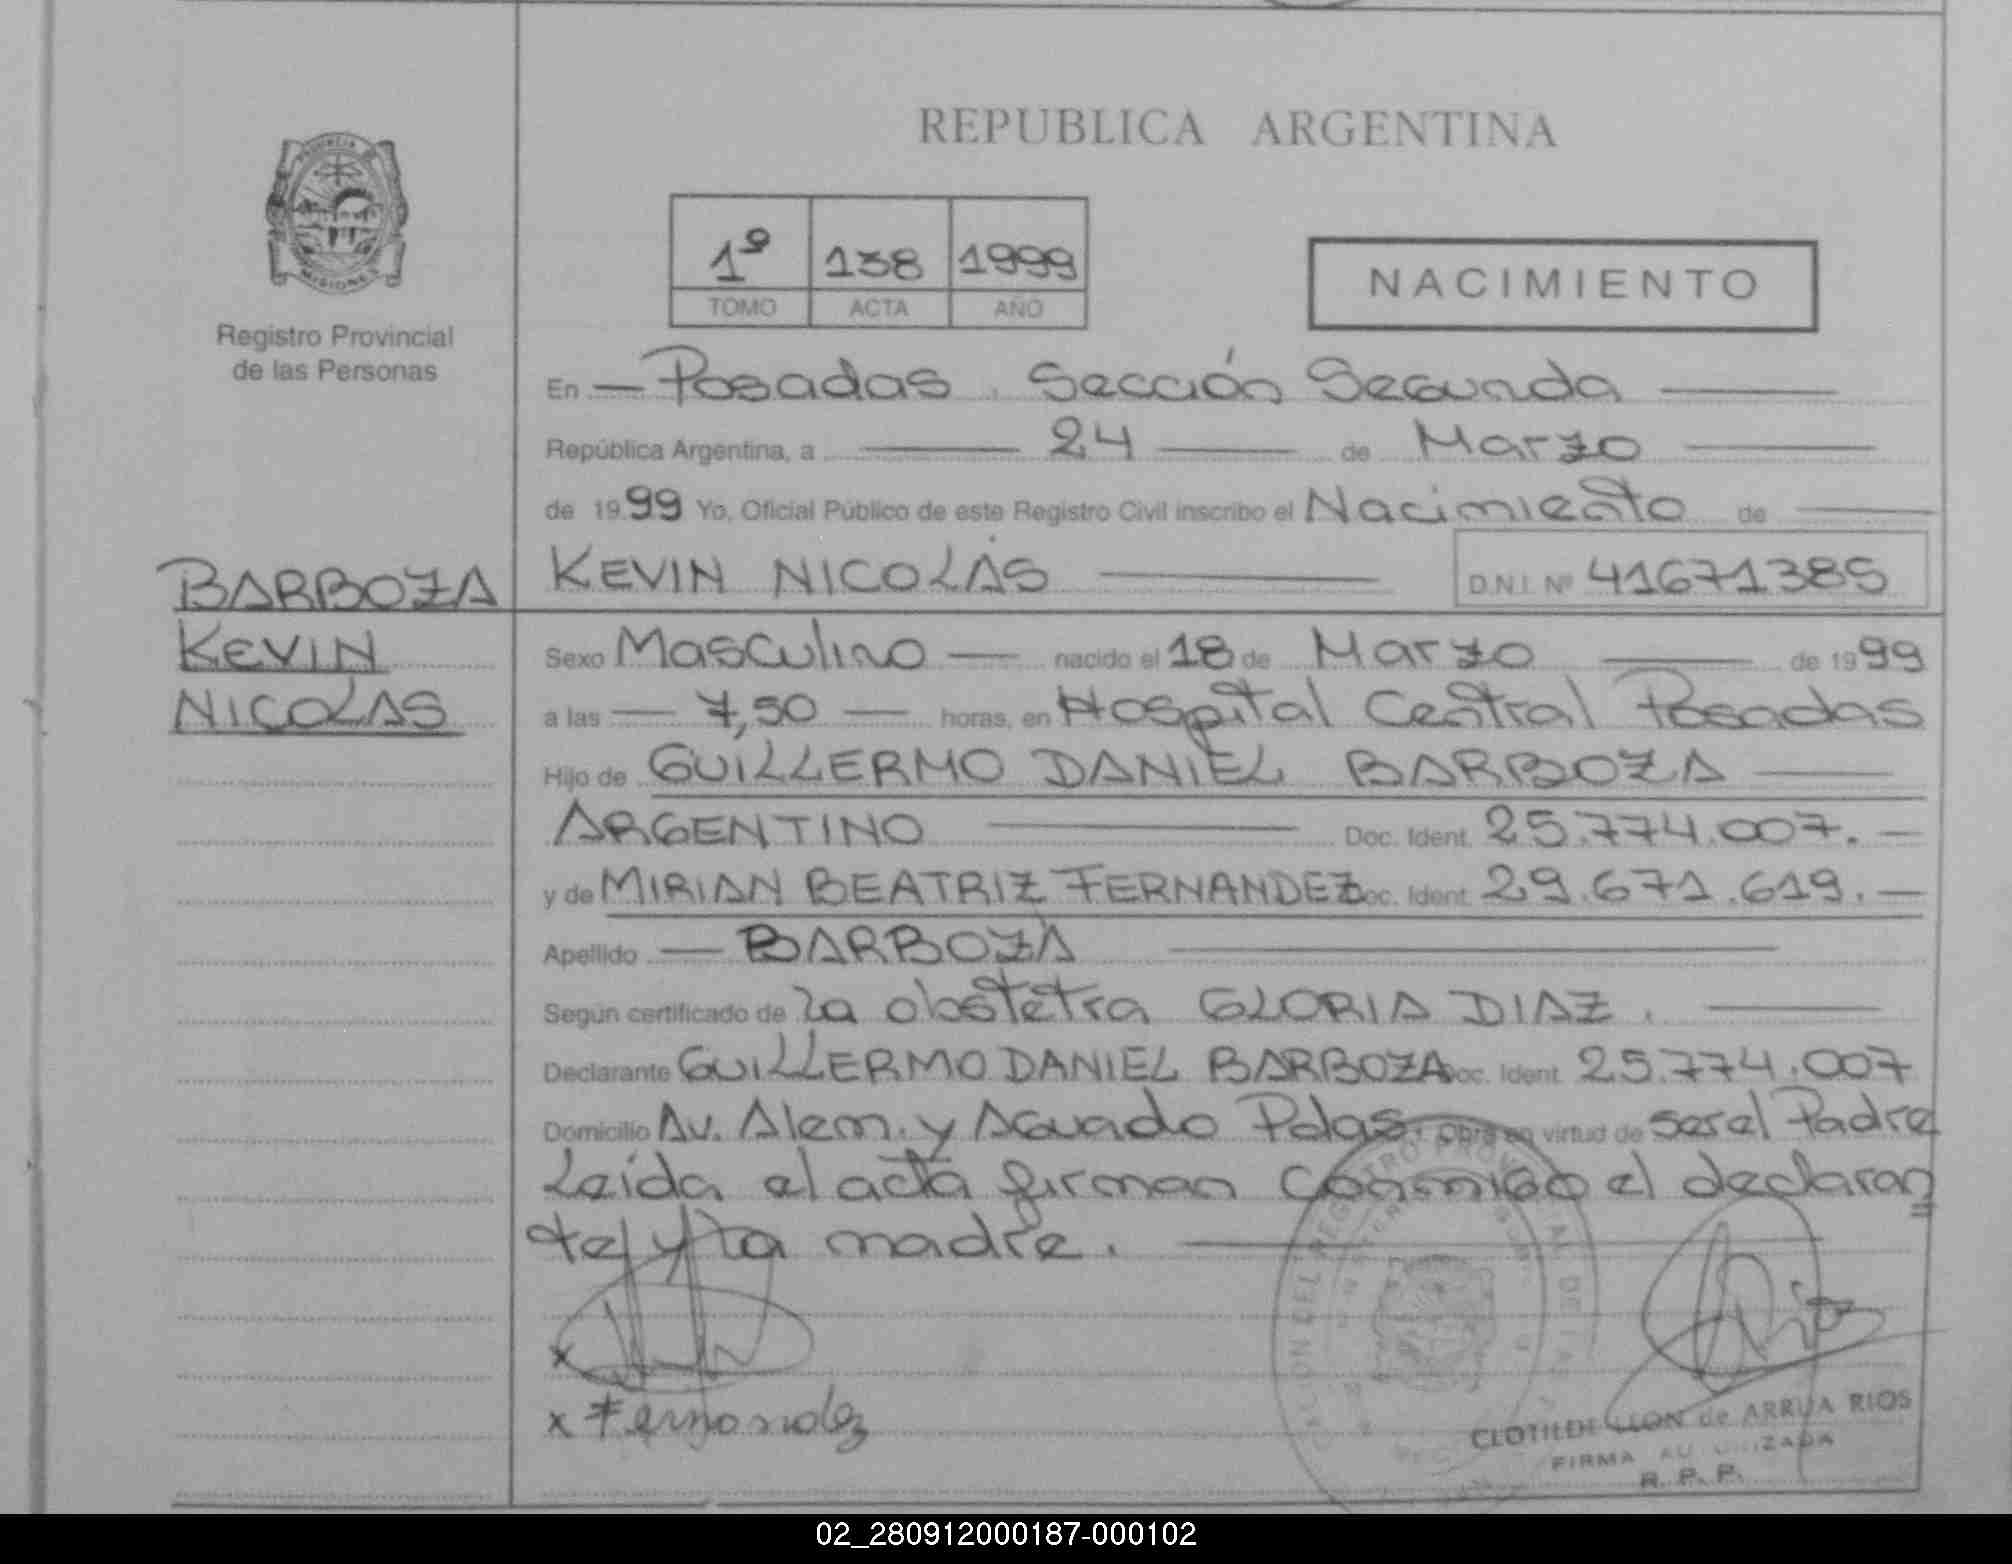 REPUBLICA ARGENTINA
PROVINCIA DE
MISIONES
Registro Provincial
de las Personas
1º 138 1999
TOMO ACTA AÑO
NACIMIENTO
En Posadas. Sección Segunda
República Argentina, a 24 de Marzo
de 1999 Yo, Oficial Público de este Registro Civil inscribo el Nacimiento de
KEVIN NICOLÁS D.N.I. Nº 41671385
BARBOZA
KEVIN
NICOLAS
Sexo Masculino nacido el 18 de Marzo de 1999
a las 7,50 horas, en Hospital Central Posadas
Hijo de GUILLERMO DANIEL BARBOZA
ARGENTINO Doc. Ident. 25.774.007.
y de MIRIAN BEATRIZ FERNANDEZ Doc. Ident. 29.671.619.
Apellido BARBOZA
Según certificado de la obstetra GLORIA DIAZ.
Declarante GUILLERMO DANIEL BARBOZA Doc. Ident. 25.774.007
Domicilio Av. Alem. y Aguado Pdas. Obra en virtud de ser el Padre
Leída el acta firman conmigo el declaran
te y la madre.
x
x Fernandez
CLOTILDE LLON de ARRUA RIOS
FIRMA AUTORIZADA
R. P. P.
02_280912000187-000102